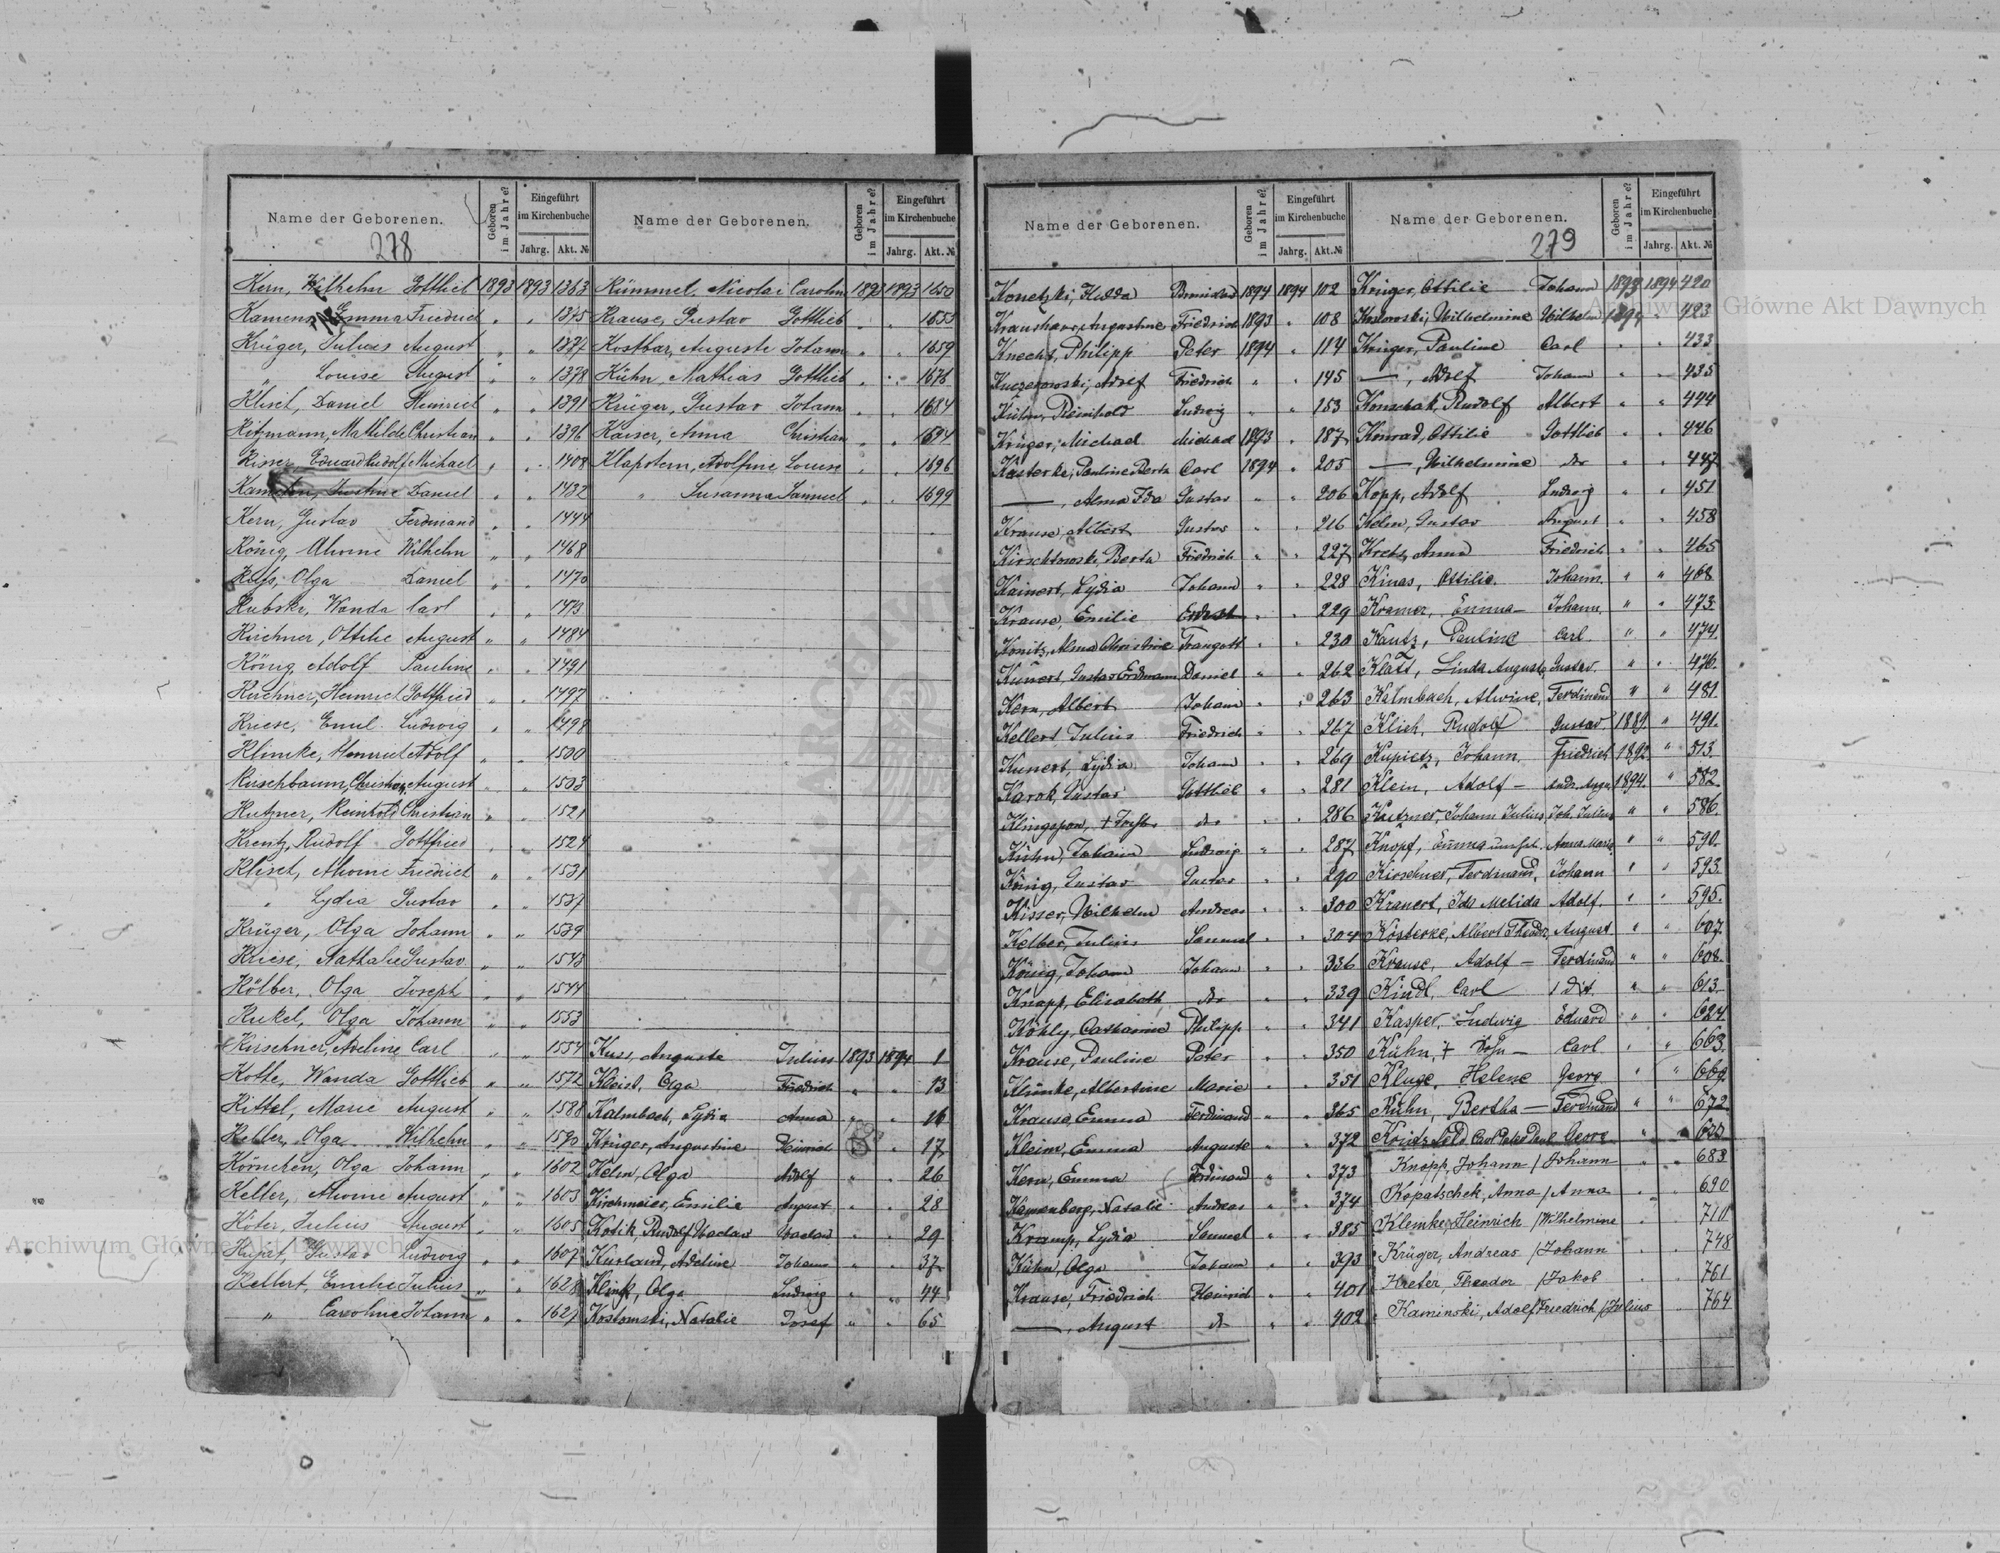 Archiwum Główne Akt Dawnych
Name der Geborenen.
Geboren im Jahre?
Eingeführt im Kirchenbuche
Jahrg. Akt. №
278
Kern, Wilhelm Gottlieb 1893 1893 1363
Emma Friedrich " " 1375
Krüger, Julius August " " 1377
Louise August " " 1378
Kliset, Daniel Heinrich " " 1391
Kitzmann, Mathilde Christian " " 1396
Risser, Eduard Rudolf Michael " " 1408
Justine Daniel " " 1432
Kern, Gustav Ferdinand " " 1444
König, Alwine Wilhelm " " 1468
Olga Daniel " " 1470
Wanda Carl " " 1473
Kirchner, Ottilie August " " 1484
König, Adolf Pauline " " 1491
Kirchner, Heinrich Gottfried " " 1497
Kriese, Emil Ludwig " " 1498
Klimke, Adolf " " 1500
Kirschbaum, Christian, August " " 1503
Kutzner, Reinhold Christian " " 1521
Krentz, Rudolf Gottfried " " 1524
Kliset, Alwine Friedrich " " 1531
" Lydia Gustav " " 1537
Krüger, Olga Johann " " 1539
Kliese, Nathalie Gustav " " 1543
Kölber, Olga Joseph " " 1544
Kukel, Olga Johann " " 1553
Kirschner, Adeline Carl " " 1554
Kothe, Wanda Gottlieb " " 1572
Kittel, Marie August " " 1588
Keller, Olga Wilhelm " " 1590
Körnchen, Olga Johann " " 1602
Keller, Alwine August " " 1603
Köter, Julius August " " 1605
Kujat, Gustav Ludwig " " 1607
Emilie Julius " " 1628
" Caroline Johann " " 1627
Name der Geborenen.
Geboren im Jahre?
Eingeführt im Kirchenbuche
Jahrg. Akt. №
Kümmel, Nicolai Carolin 1893 1893 1650
Krause, Gustav Gottlieb " " 1653
Kostbar, Auguste Johann " " 1659
Kühn, Mathias Gottlieb " " 1676
Krüger, Gustav Johann " " 1684
Kaiser, Anna Christian " " 1694
Klapstein, Adolfine Louise " " 1696
" Susanna Samuel " " 1699
Kuss, Auguste Julius 1893 1894 1
Kleist, Olga Friedrich " " 13
Kalmbach, Lydia Anna " " 16
Krüger, Augustine Heinrich " " 17
Kelm, Olga Adolf " " 26
Kirchmeier, Emilie August " " 28
Kotik, Rudolf Waclaw Waclaw " " 29
Kurland, Adeline Johann " " 37
Klink, Olga Ludwig " " 44
Kostomski, Natalie Josef " " 65
Name der Geborenen.
Geboren im Jahre?
Eingeführt im Kirchenbuche
Jahrg. Akt. №
Konetzki, Hedda 1894 1894 102
Kraushaar, Augustine Friedrich 1893 " 108
Knecht, Philipp Peter 1894 " 114
Adolf Friedrich " " 145
Kühn, Reinhold Ludwig " " 153
Krüger, Michael Michael 1893 " 187
Kösterke, Pauline Berta Carl 1894 " 205
—, Alma Ida Gustav " " 206
Krause, Albert Gustav " " 216
Kirschkowski, Berta Friedrich " " 227
Kainert, Lydia Johann " " 228
Krause, Emilie " " 229
Konitz, Alma Christine Traugott " " 230
Kunert, Gustav Erdmann Daniel " " 262
Kern, Albert Johann " " 263
Kellert Julius Friedrich " " 267
Kunert, Lydia Johann " " 269
Karok, Gustav Gottlieb " " 281
" " 286
Kühn, Johann Ludwig " " 287
König, Gustav Gustav " " 290
Kisser, Wilhelm Andreas " " 300
Kelber, Julius Samuel " " 304
König, Johann Johann " " 336
Knapp, Elisabeth do " " 339
Kohly, Catharine Philipp " " 341
Krause, Pauline Peter " " 350
Klimke, Albertine Marie " " 351
Krause, Emma Ferdinand " " 365
Kleim, Emma Auguste " " 372
Kern, Emma Ferdinand " " 373
Natalie Andreas " " 374
Kramp, Lydia Samuel " " 385
Kühn, Olga Johann " " 393
Krause, Friedrich Heinrich " " 401
—, August do " " 402
Name der Geborenen.
Geboren im Jahre?
Eingeführt im Kirchenbuche
Jahrg. Akt. №
279
Krüger, Ottilie Johann 1893 1894 420
Wilhelmine Wilhelm 1894 " 423
Krüger, Pauline Carl " " 433
—, Adolf Johann " " 435
Konschak, Rudolf Albert " " 444
Konrad, Ottilie Gottlieb " " 446
—, Wilhelmine do " " 447
Kopp, Adolf Ludwig " " 451
Kelm, Gustav August " " 458
Kretz, Anna Friedrich " " 465
Kinas, Ottilie Johann " " 468
Kramer, Emma — Johann " " 473
Kautz, Pauline Carl " " 474
Klatt, Linda Auguste, Gustav. " " 476.
Kalmbach, Alwine, Ferdinand " " 481
Klich, Rudolf Gustav 1889. " 491.
Kupietz, Johann. Friedrich 1892 " 513.
Klein, Adolf — 1894. " 582.
Kutzner, Johann Julius, Joh. Julius " " 586.
Knopf, Emma Anna Maria " " 590.
Kirschner, Ferdinand, Johann " " 593.
Kranert, Ida Melida Adolf. " " 595.
Kösterke, Albert Theodor, August. " " 607.
Krause, Adolf — Ferdinand " " 608.
Kindl, Carl " " 613.
Kasper, Ludwig Eduard " " 624
Kühn, † Sohn — Carl " " 663.
Kluge, Helene Georg " " 669.
Kühn, Bertha — Ferdinand " " 672.
Georg
Knopp, Johann / Johann " " 683
Kopatschek, Anna / Anna " " 690
Klemke, Heinrich / Wilhelmine " " 710
Krüger, Andreas / Johann " " 748
Kreter, Theodor / Jakob " " 761
Kaminski, Adolf Friedrich / Julius " 764
Archiwum Główne Akt Dawnych